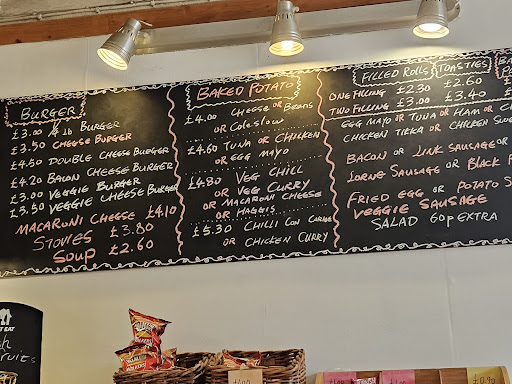 BURGER
£3.00 ¼ lb BURGER
£3.50 CHEESE BURGER
£4.50 DOUBLE CHEESE BURGER
£4.20 BACON CHEESE BURGER
£3.00 VEGGIE BURGER
£3.50 VEGGIE CHEESE BURGER
MACARONI CHEESE £4.10
STOVIES £3.80
SOUP £2.60
BAKED POTATO
£4.00 CHEESE OR BEANS
OR COLESLOW
£4.60 TUNA OR CHICKEN
OR EGG MAYO
£4.80 VEG CHILL
OR VEG CURRY
OR MACARONI CHEESE
OR HAGGIS
£5.30 CHILLI CON CARNE
OR CHICKEN CURRY
FILLED ROLLS TOASTIES
ONE FILLING £2.30 £2.60
TWO FILLING £3.00 £3.40
EGG MAYO OR TUNA OR HAM OR
CHICKEN TIKKA OR CHICKEN
BACON OR LINK SAUSAGE OR
LORNE SAUSAGE OR BLACK
FRIED EGG OR POTATO
VEGGIE SAUSAGE
SALAD 60p EXTRA
EAT